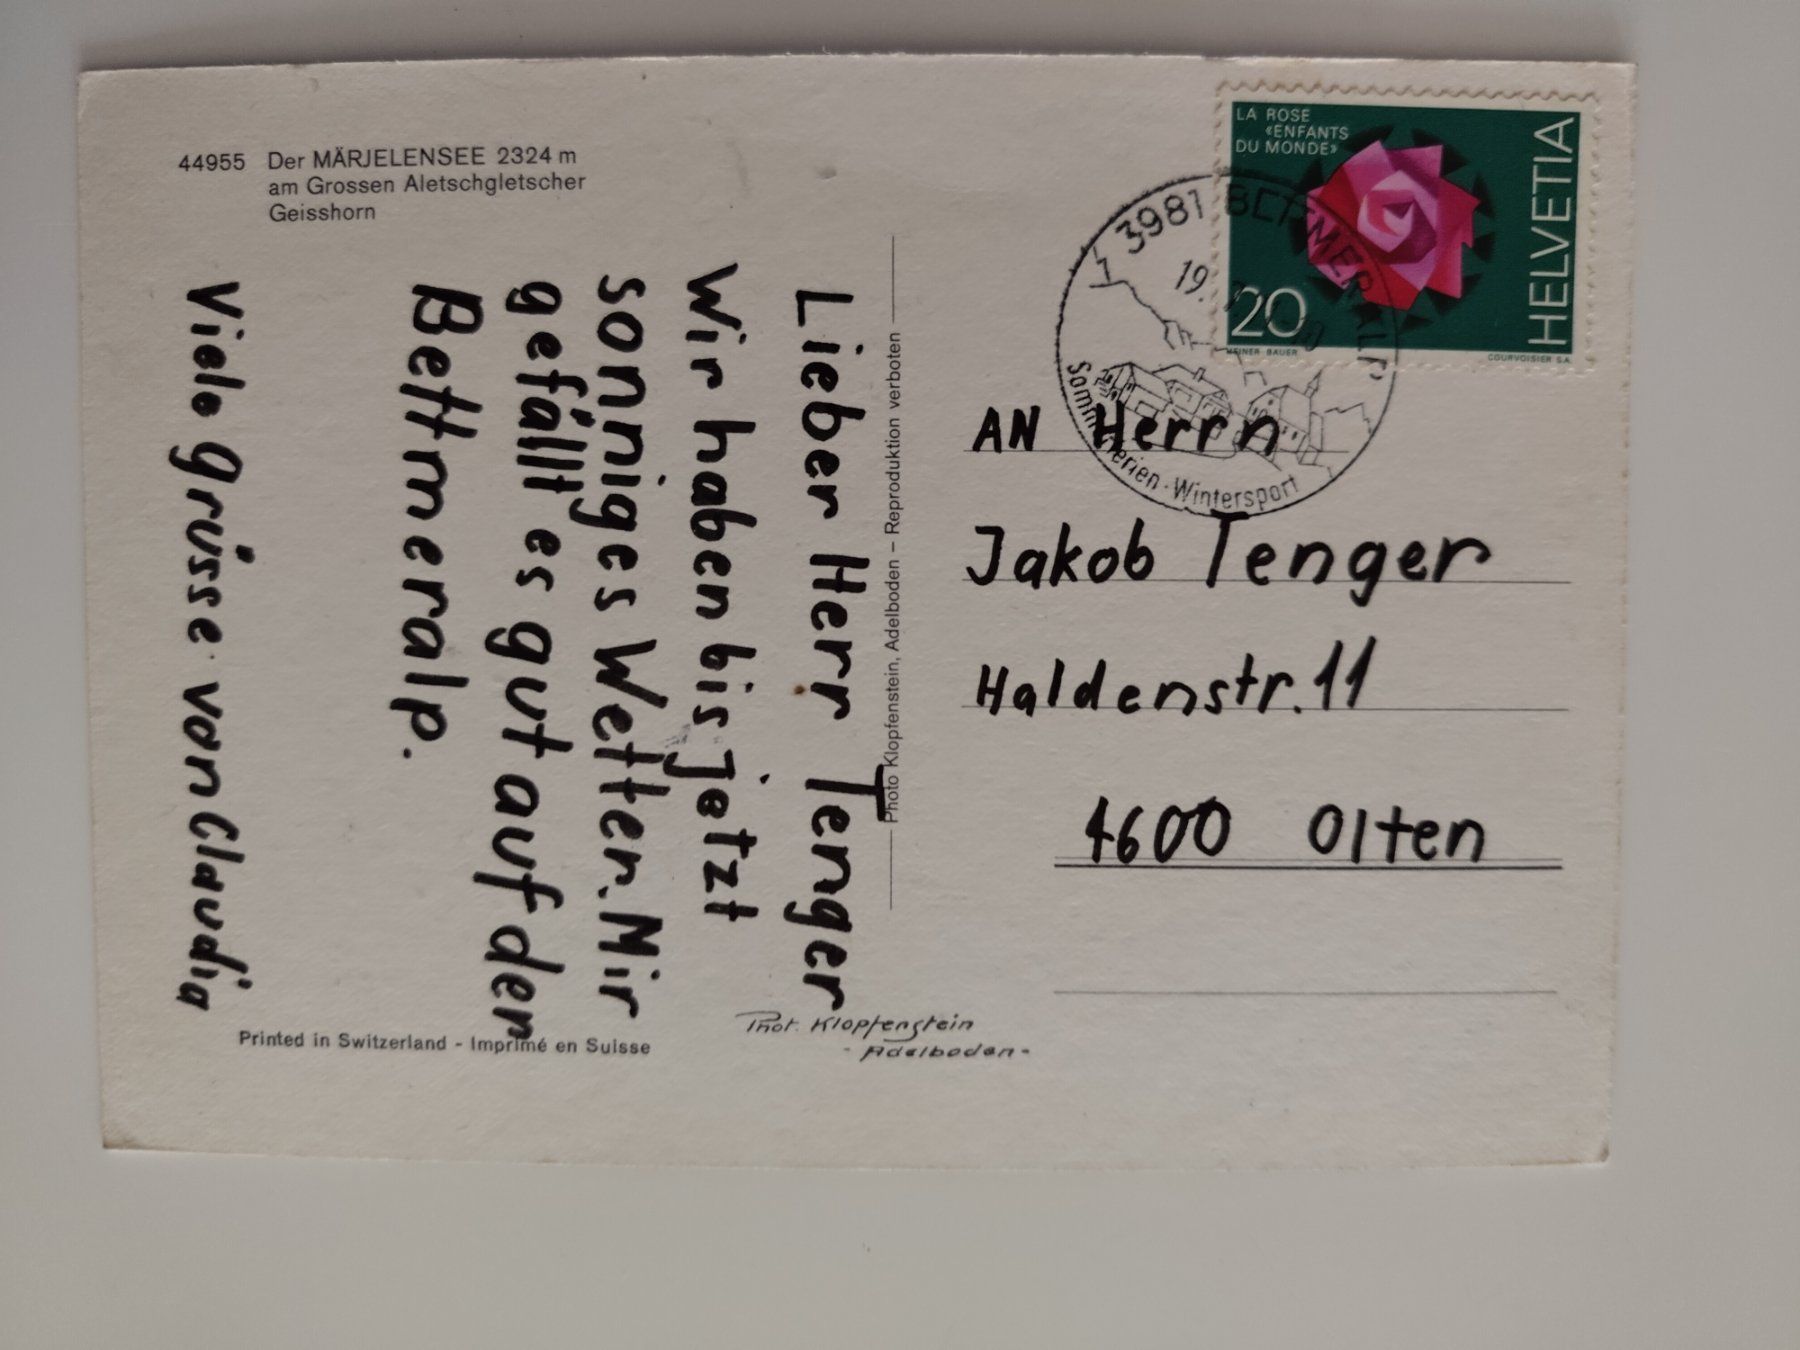 44955 Der MÄRJELENSEE 2324 m
am Grossen Aletschgletscher
Geisshorn
Lieber Herr Tenger
Wir haben bis jetzt
sonniges Wetter. Mir
gefällt es gut auf der
Bettmeralp.
Viele Grüsse von Claudia
Printed in Switzerland - Imprimé en Suisse
Photo Klopfenstein, Adelboden – Reproduktion verboten
Phot. Klopfenstein
- Adelboden -
LA ROSE
«ENFANTS
DU MONDE»
HELVETIA
20
HEINER BAUER
COURVOISIER S.A.
3981 BETTMERALP
19.
Sommerferien · Wintersport
AN Herrn
Jakob Tenger
Haldenstr. 11
4600 Olten